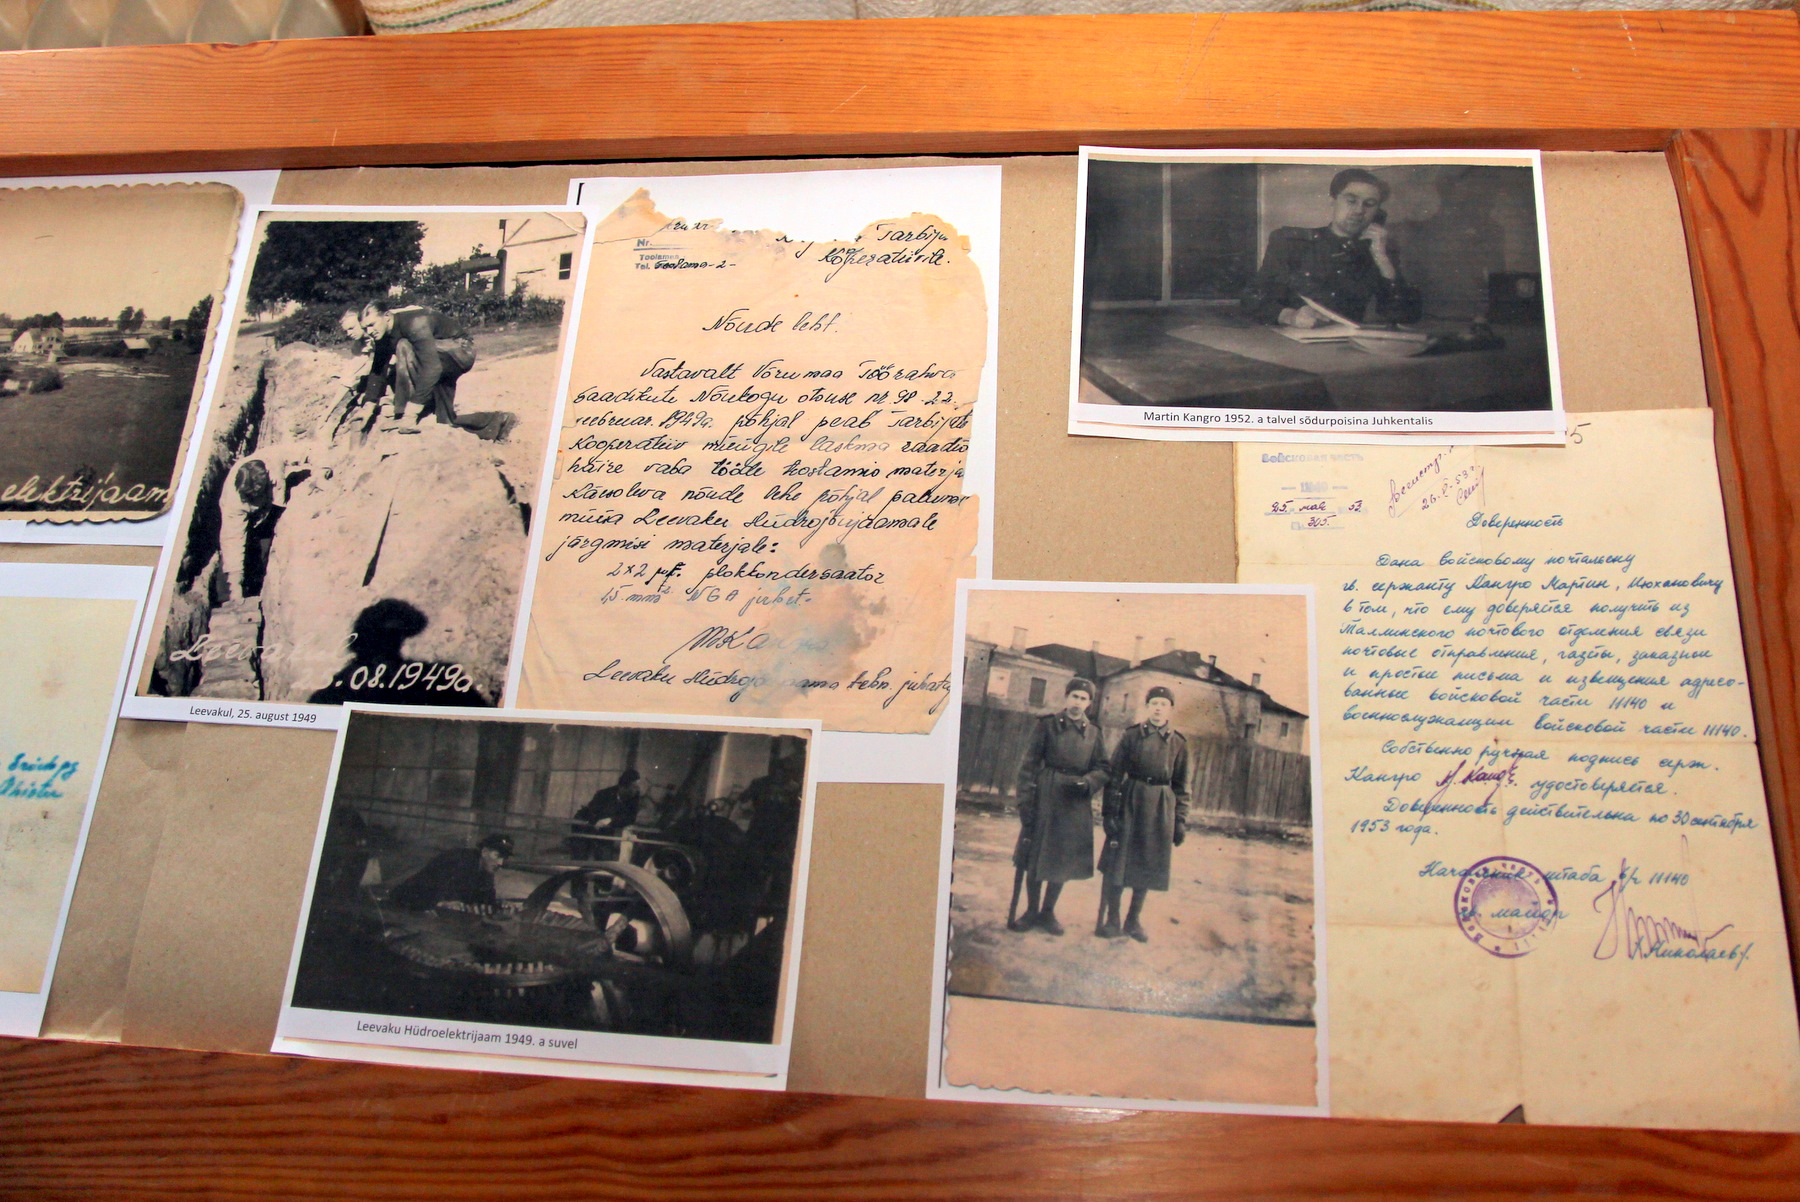 elektrijaam
08.1949a.
Leevakul, 25. august 1949
Tarbija
Kooperatiivile.
Nr.
Toolamaa
Tel. Toolama-2-
Nõude leht.
Vastavalt Võrumaa Töörahva
Saadikute Nõukogu otsuse nr 98. 22.
veebruar. 1949a. põhjal peab Tarbijate
Kooperatiiv müügile laskma raadio
häire vaba tööde kostamis materja
Käesoleva nõude lehe põhjal palume
müüa Leevaku Hüdrojõujaamale
järgmisi materjale:
2x2 µF. plokkondensaator
15 mm². NGA juhet.
MKangro
Leevaku Hüdrojõujaama tehn. juhataja
Leevaku Hüdroelektrijaam 1949. a suvel
Martin Kangro 1952. a talvel sõdurpoisina Juhkentalis
Войсковая часть
11140
25. мая 53
305.
26.5.53г.
Доверенность
Дана войсковому почтальону
гв. сержанту Кангро Мартин, Июхановичу
в том, что ему доверяется получить из
Таллинского почтового отделения связи
почтовые отправления, газеты, заказные
и простые письма и извещения адресо-
ванные войсковой части 11140 и
военнослужащим войсковой части 11140.
Собственно ручная подпись серж.
Кангро М. Кангро. удостоверяется.
Доверенность действительна по 30 сентября
1953 года.
Начальник штаба в/ч 11140
гв. майор
/Николаев/.